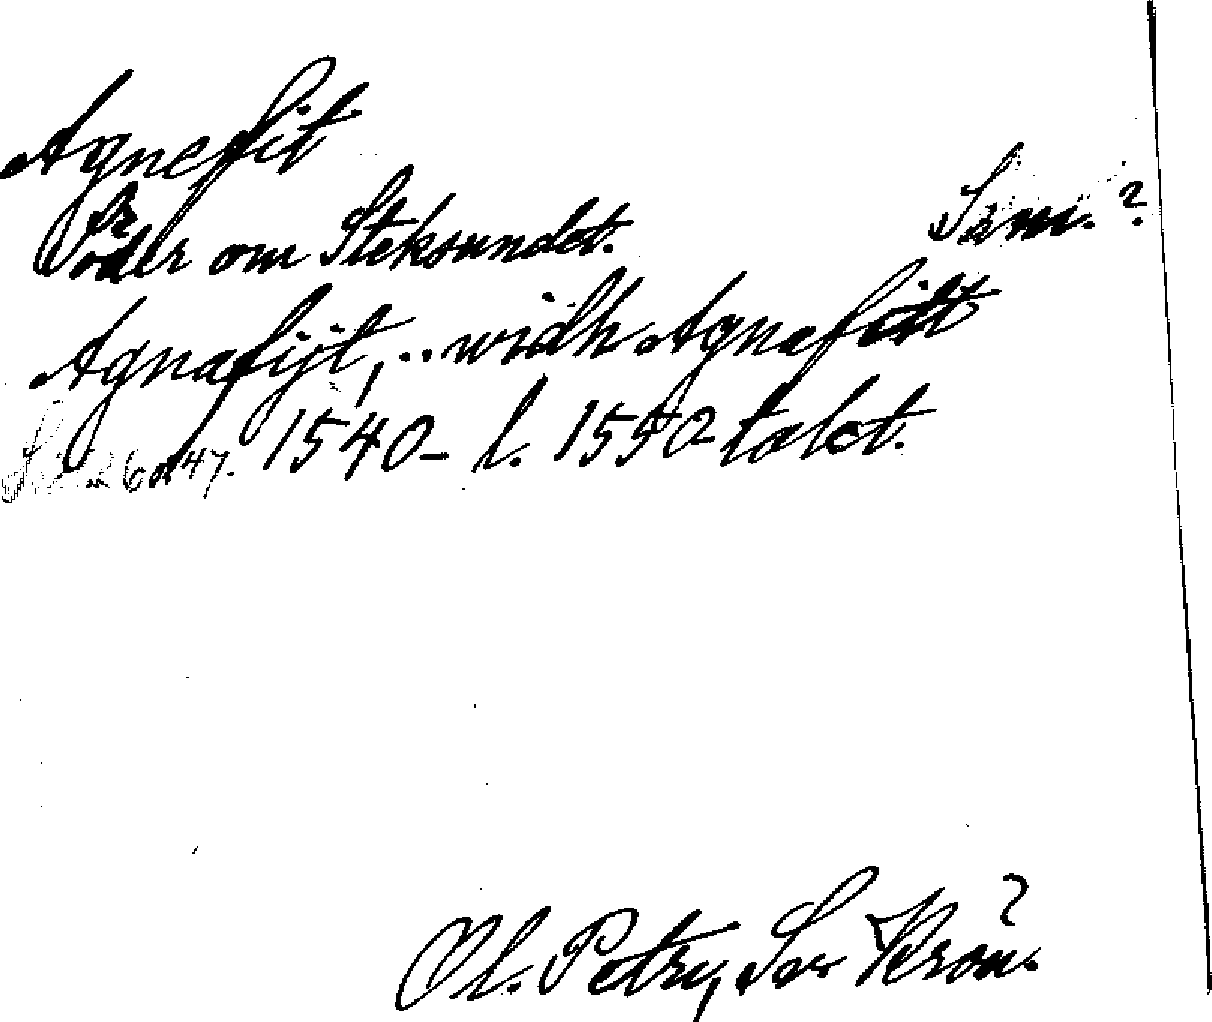 Agnefit
Söder om Steksundet. Söm.?
Agnafijt,.. widh Agnafitt
26 o 47. 1540- l. 1550 talet.
Ol. Petry, Sv Krön.